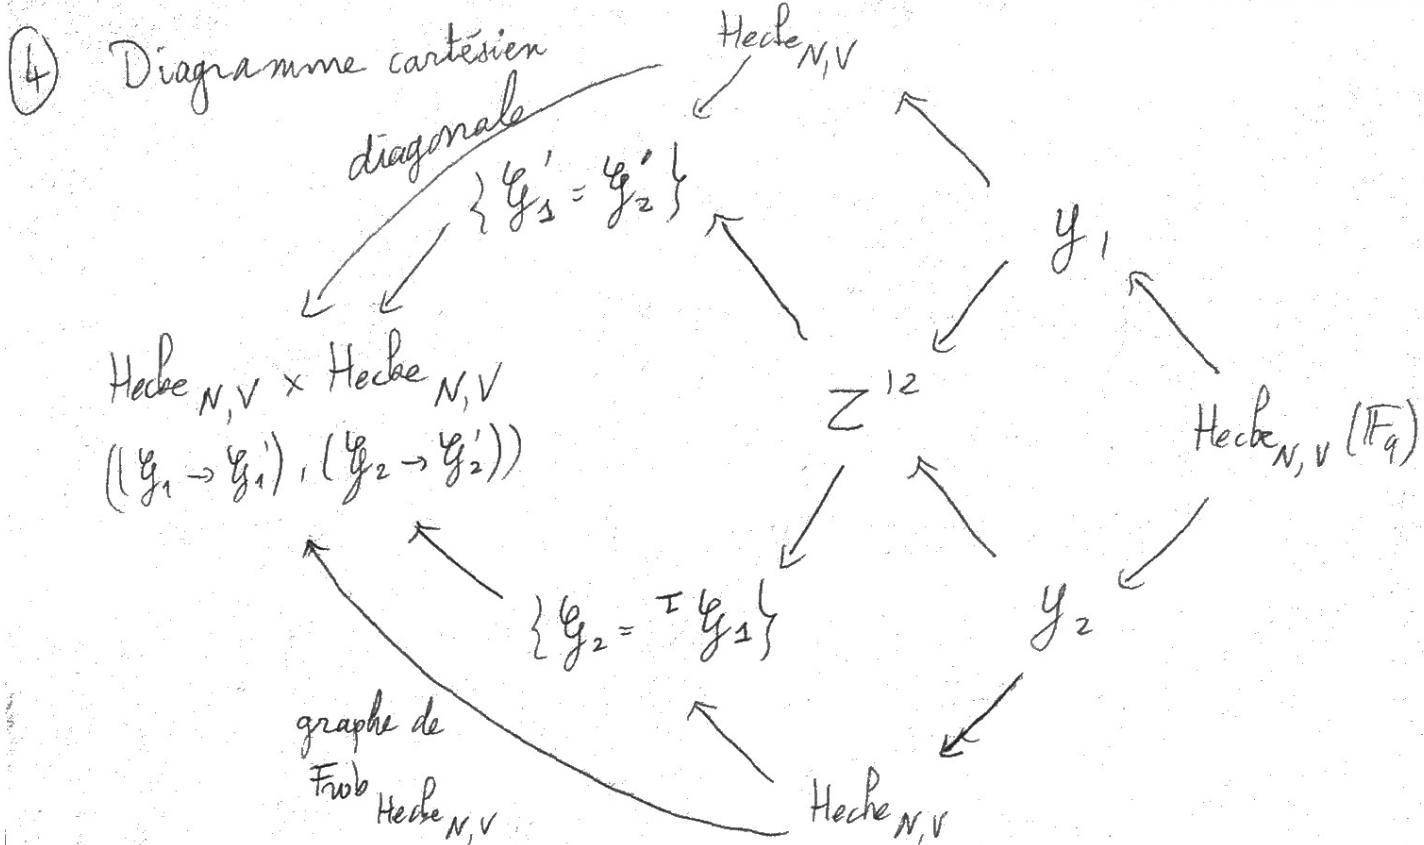 ④ Diagramme cartésien
Hecke_{N,V}
diagonale
{𝒢'_1 = 𝒢'_2}
𝒴_1
Hecke_{N,V} × Hecke_{N,V}
((𝒢_1 → 𝒢'_1), (𝒢_2 → 𝒢'_2))
Z^{12}
Hecke_{N,V}(𝔽_q)
{𝒢_2 = ^τ𝒢_1}
𝒴_2
graphe de
Frob_{Hecke_{N,V}}
Hecke_{N,V}